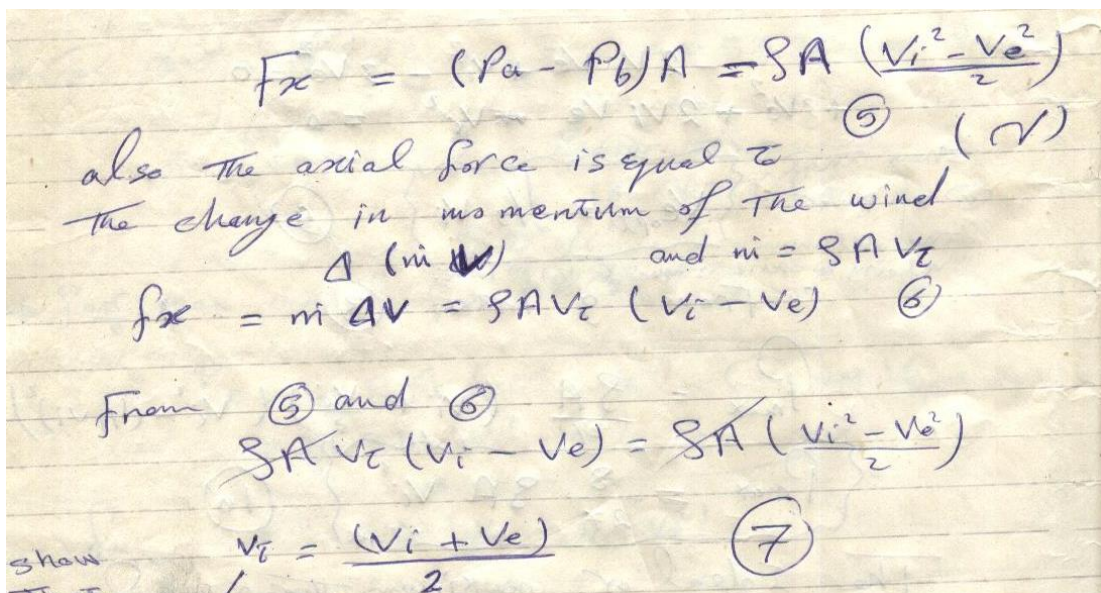 Fx = (Pa - Pb)A = ρA (Vi² - Ve² / 2)
⑤ (N)
also The axial force is equal to
The change in momentum of The wind
Δ (ṁ V) and ṁ = ρAVt
fx = ṁ ΔV = ρAVt (Vi - Ve) ⑥
From ⑤ and ⑥
ρA Vt (Vi - Ve) = ρA (Vi² - Ve² / 2)
show Vt = (Vi + Ve) / 2 ⑦